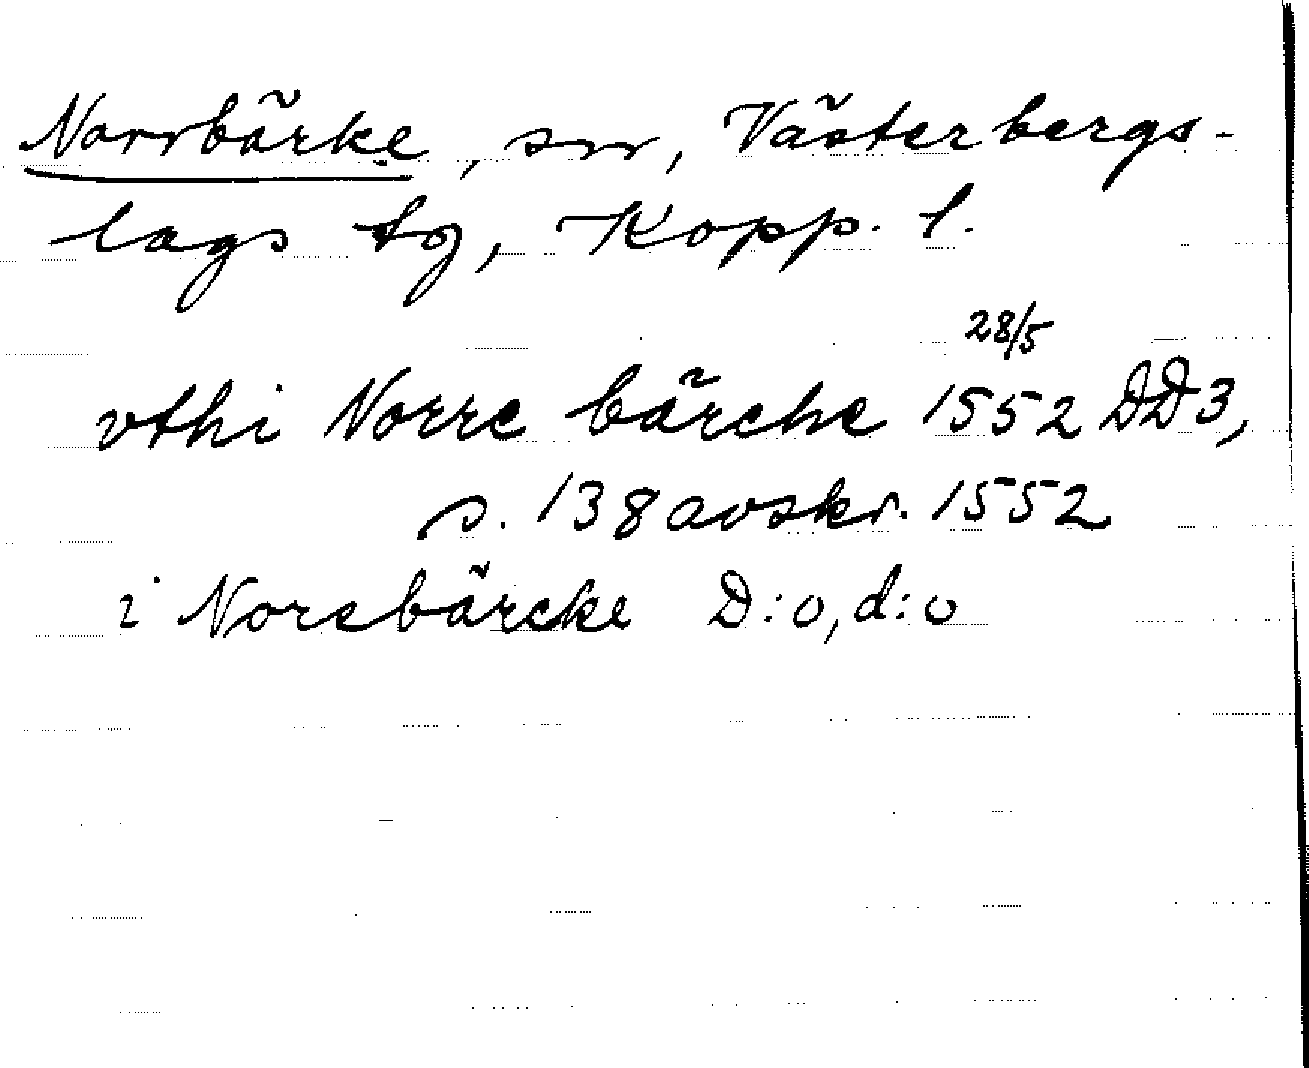 Norrbärke, sn, Västerbergs-
lags tg, Kopp. l.
28/5
vthi Norre bärche 1552 DD3,
s. 138 avskr. 1552
i Norebärcke D:o, d:o